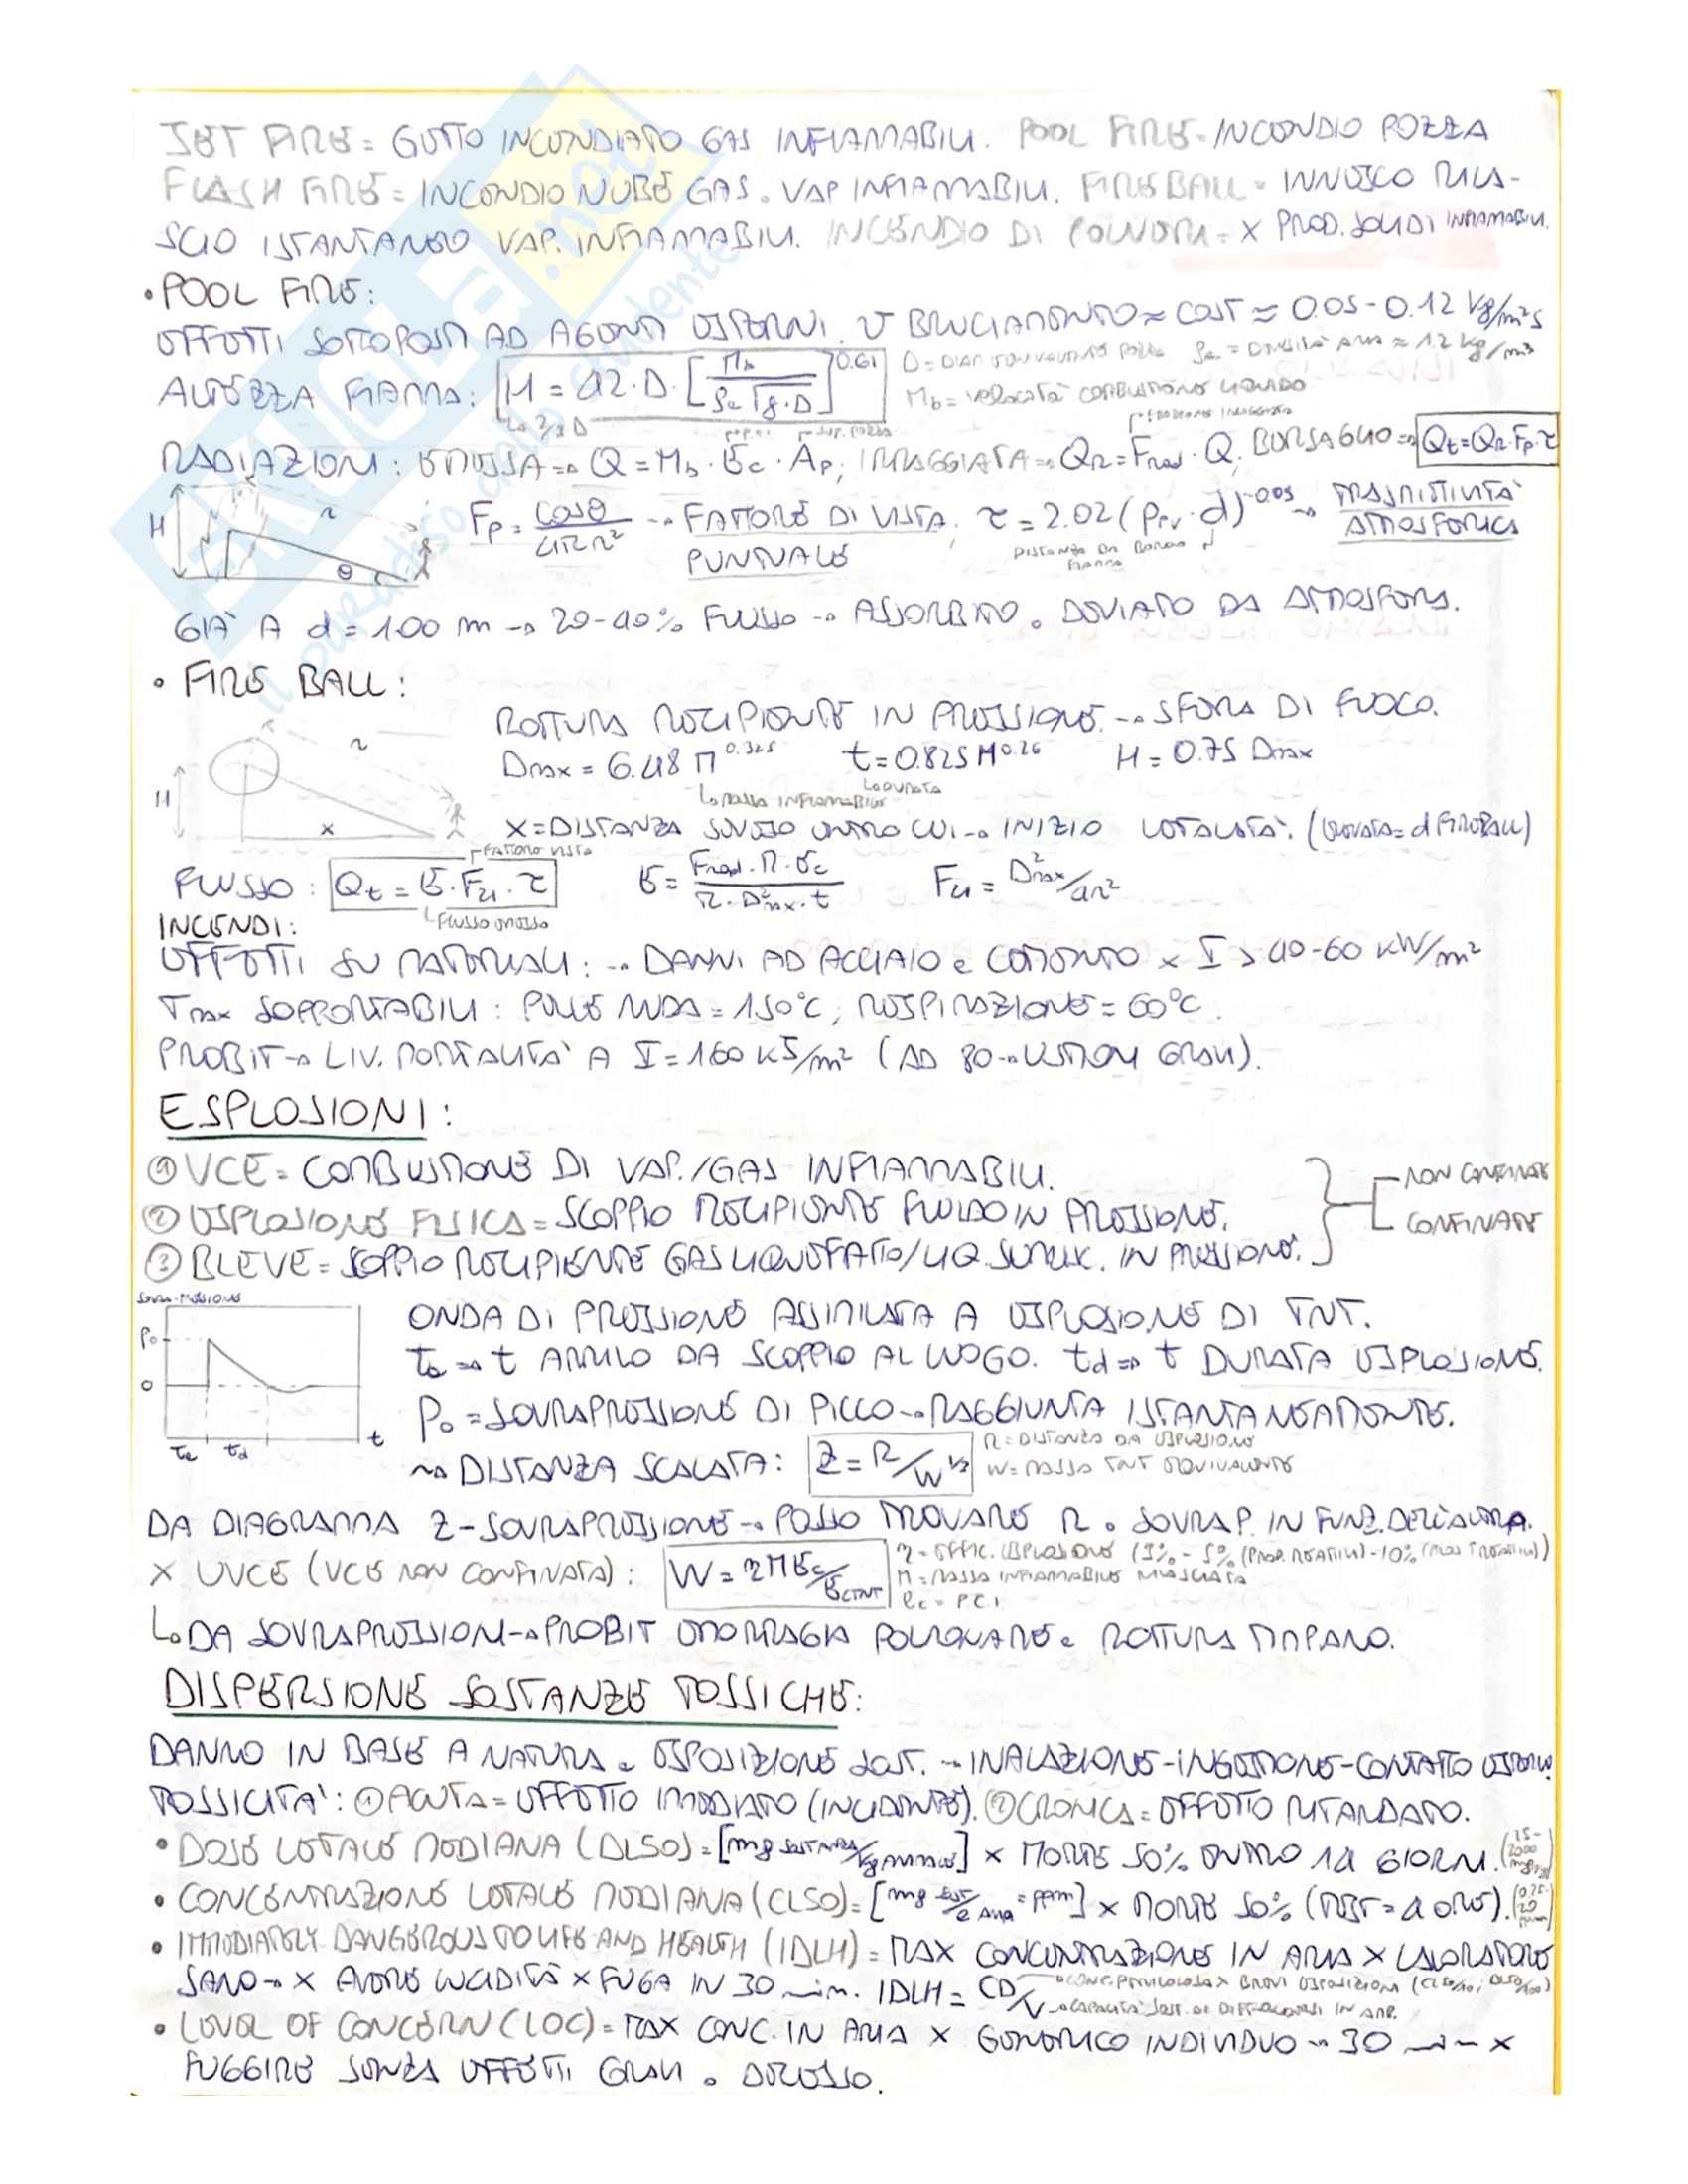 JET FIRE = GETTO INCENDIATO GAS INFIAMMABILI. POOL FIRE = INCENDIO POZZA
FLASH FIRE = INCENDIO NUBE GAS e VAP INFIAMMABILI. FIREBALL = INNESCO RILA-
SCIO ISTANTANEO VAP. INFIAMMABILI. INCENDIO DI POLVERI = X PROD. SOLIDI INFIAMMABILI.
• POOL FIRE:
EFFETTI SOTTOPOSTI AD AGENTI ESTERNI. V BRUCIAMENTO ≈ COST ≈ 0.05-0.12 Kg/m²s
ALTEZZA FIAMMA: H = 42·D·[Mb/(ρa√(g·D))]^0.61 D = DIAM EQUIVALENTE POZZA ρa = DENSITÀ ARIA ≈ 1.2 kg/m³
↳ 2/3 D Mb = VELOCITÀ COMBUSTIONE LIQUIDO
P.C.I SUP. POZZA FRAZIONE IRRAGGIATA
RADIAZIONI: EMESSA → Q = Mb · Ec · Ap; IRRAGGIATA → QR = Frad · Q; BERSAGLIO → Qt = QR·Fp·τ
H r θ Fp = cosθ/4πr² → FATTORE DI VISTA PUNTUALE, τ = 2.02 (Prv · d)^-0.09 → TRASMITTIVITÀ ATMOSFERICA
DISTANZA DA BORDO FIAMMA
GIÀ A d = 100 m → 20-40% FLUSSO → ASSORBITO e DEVIATO DA ATMOSFERA.
• FIRE BALL:
ROTTURA RECIPIENTE IN PRESSIONE → SFERA DI FUOCO.
Dmax = 6.48 M^0.325 t = 0.825 M^0.26 H = 0.75 Dmax
↳ MASSA INFIAMMABILE ↳ DURATA
H r x X = DISTANZA SUOLO ENTRO CUI → INIZIO LETALITÀ. (ELEVATA = d FIREBALL)
FATTORE VISTA
FLUSSO: Qt = E·F21·τ E = Frad·M·Ec/π·D²max·t F21 = D²max/4r²
↳ FLUSSO EMESSO
INCENDI:
EFFETTI SU MATERIALI: → DANNI AD ACCIAIO e CEMENTO X I > 40-60 kW/m²
Tmax SOPPORTABILI: PELLE NUDA = 150°C; RESPIRAZIONE = 60°C.
PROBIT → LIV. MORTALITÀ A I = 160 kJ/m² (AD 80 → LESIONI GRAVI).
ESPLOSIONI:
① VCE = COMBUSTIONE DI VAP./GAS INFIAMMABILI.
② ESPLOSIONE FISICA = SCOPPIO RECIPIENTE FLUIDO IN PRESSIONE.
③ BLEVE = SCOPPIO RECIPIENTE GAS LIQUEFATTO/LIQ. SURRISC. IN PRESSIONE.
NON CONFINATE
CONFINATE
SOVRA-PRESSIONE
P0
0
ta td t
ONDA DI PRESSIONE ASSIMILATA A ESPLOSIONE DI TNT.
ta → t ARRIVO DA SCOPPIO AL LUOGO. td → t DURATA ESPLOSIONE.
P0 = SOVRAPRESSIONE DI PICCO → RAGGIUNTA ISTANTANEAMENTE.
→ DISTANZA SCALATA: Z = R/W^1/3 R = DISTANZA DA ESPLOSIONE
W = MASSA TNT EQUIVALENTE
DA DIAGRAMMA Z-SOVRAPRESSIONE → POSSO TROVARE R o SOVRAP. IN FUNZ. DELL'ALTRA.
X UVCE (VCE NON CONFINATA): W = ηMEc/EcTNT η = EFFIC. ESPLOSIONE (3% - 5% (PROP. REATTIVI) - 10% (MOLT REATTIVI))
M = MASSA INFIAMMABILE RILASCIATA
Ec = P.C.I
↳ DA SOVRAPRESSIONI → PROBIT EMORRAGIA POLMONARE e ROTTURA TIMPANO.
DISPERSIONE SOSTANZE TOSSICHE:
DANNO IN BASE A NATURA e ESPOSIZIONE SOST. → INALAZIONE-INGESTIONE-CONTATTO ESTERNO.
TOSSICITÀ: ① ACUTA = EFFETTO IMMEDIATO (INCIDENTE). ② CRONICA = EFFETTO RITARDATO.
• DOSE LETALE MEDIANA (DL50) = [mg SOSTANZA/kg ANIMALE] X MORTE 50% ENTRO 14 GIORNI. (15-2000 mg/kg)
• CONCENTRAZIONE LETALE MEDIANA (CL50) = [mg SOST/l ARIA = ppm] X MORTE 50% (TEST = 4 ORE). (0.25-20 ppm)
• IMMEDIATELY DANGEROUS TO LIFE AND HEALTH (IDLH) = MAX CONCENTRAZIONE IN ARIA X LAVORATORE
SANO → X AVERE LUCIDITÀ X FUGA IN 30 min. IDLH = CD/V → CONC. PERICOLOSA X BREVI ESPOSIZIONI (CL50/10; DL50/100)
→ CAPACITÀ SOST. DI DIFFONDERSI IN AMB.
• LEVEL OF CONCERN (LOC) = MAX CONC. IN ARIA X GENERICO INDIVIDUO → 30 min X
FUGGIRE SENZA EFFETTI GRAVI o DECESSO.
SKUOLA.net
il paradiso dello studente